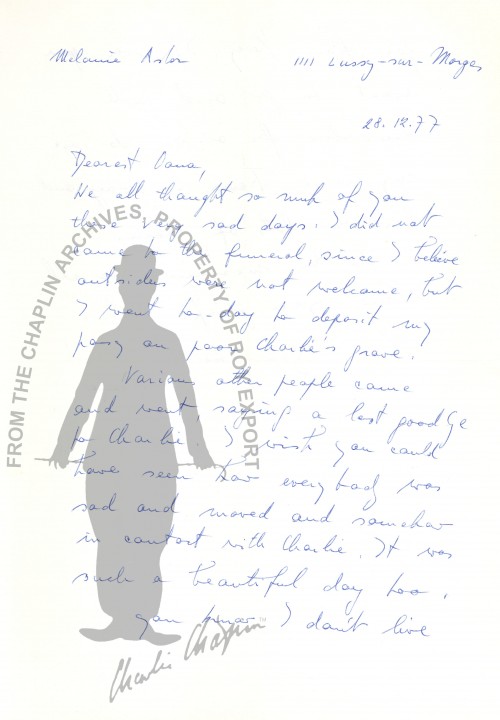 Melanie Aslor 1111 Lussy-sur-Morges
28.12.77
Dearest Oona,
We all thought so much of you
these very sad days. I did not
come to the funeral, since I believe
outsiders were not welcome, but
I went to-day to deposit my
pansy on poor Charlie's grave.
Various other people came
and went, saying a last goodbye
to Charlie. I wish you could
have seen how everybody was
sad and moved and somehow
in contact with Charlie. It was
such a beautiful day too.
you know I don't live
FROM THE CHAPLIN ARCHIVES, PROPERTY OF ROY EXPORT
Charlie Chaplin™